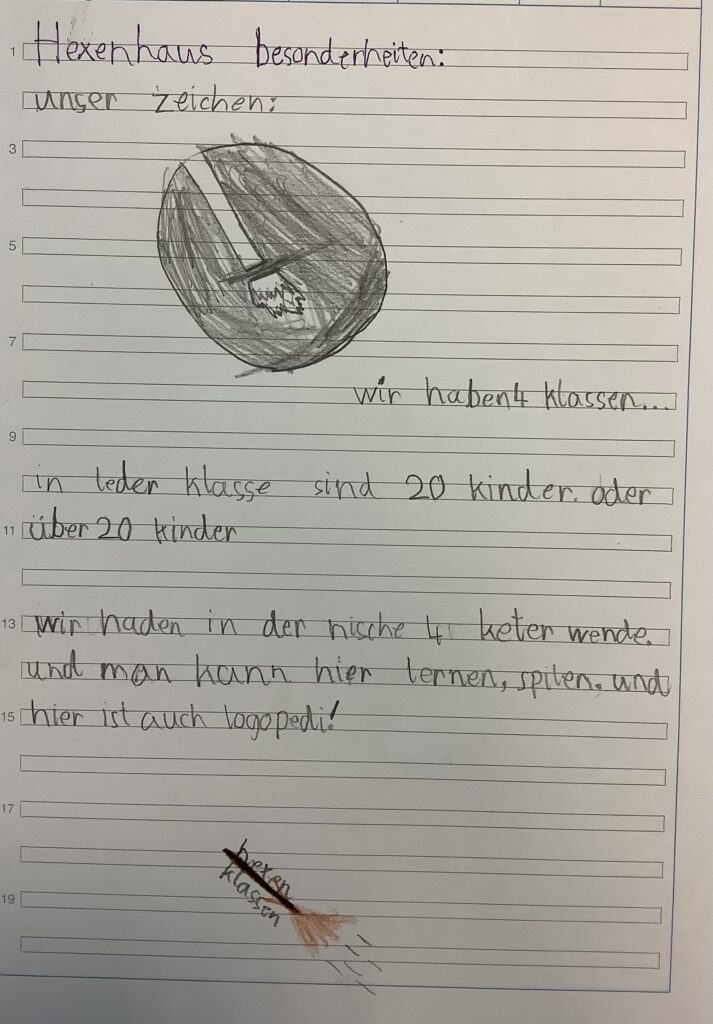 1 Hexenhaus besonderheiten:
unser zeichen:
3
5
7
wir haben 4 klassen...
9
in leder klasse sind 20 kinder. oder
11 über 20 kinder
13 wir haden in der nische 4 keter wende.
und man kann hier lernen, spilen, und
15 hier ist auch logopedi!
17
hexen
klassen
19